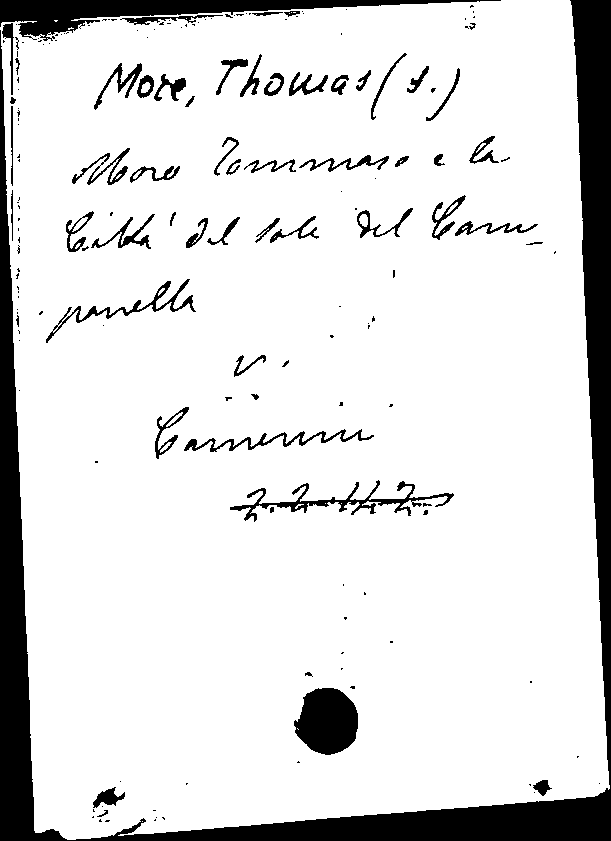 More, Thomas (s.)
Moro Tommaso e la
Città del sole del Cam-
panella
v.
Camerini
2.2.44.2.